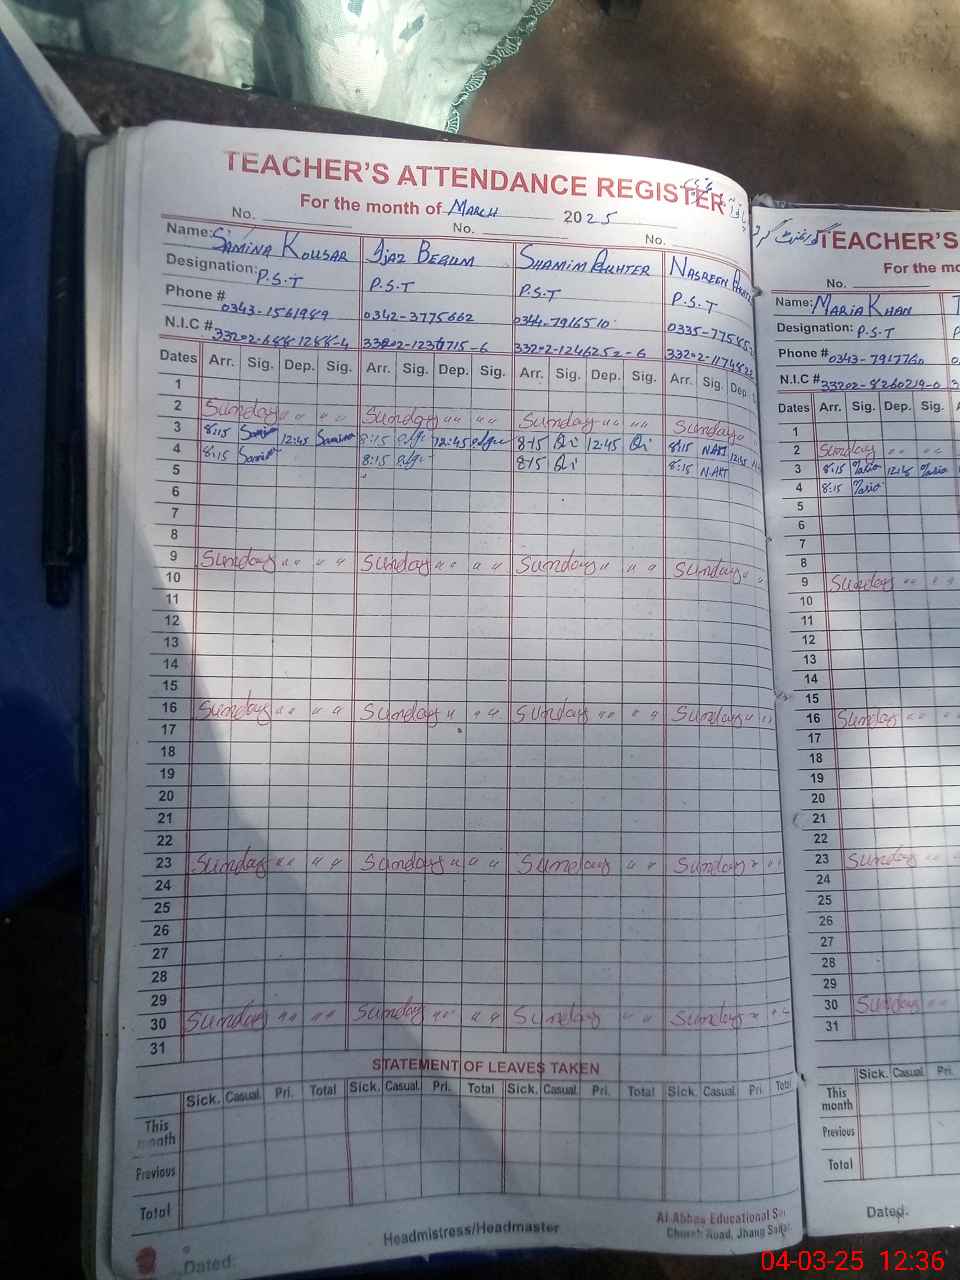 TEACHER'S ATTENDANCE REGISTER
For the month of March 2025
No. No. No.
Name: Samina Kousar Ijaz Begum Shamim Akhter Nasreen
Designation: P.S.T P.S.T P.S.T P.S.T
Phone # 0343-1561989 0342-3775662 0344-7916510 0335-77585
N.I.C # 33202-6881288-4 33202-1246252-6
Dates Arr. Sig. Dep. Sig. Arr. Sig. Dep. Sig. Arr. Sig. Dep. Sig. Arr. Sig. Dep.
1
2 Sunday " " " Sunday " " " Sunday " " " Sunday "
3 8:15 12:45 8:15 12:45 8-15 12:45 8:15 N.AKT 12:45
4 8:15 8:15 8-15 8:15 N.AKT
5
6
7
8
9 Sunday " " " Sunday " " " Sunday " " " Sunday " "
10
11
12
13
14
15
16 Sunday " " " " Sunday " " " Sunday " " " " Sunday " "
17
18
19
20
21
22
23 Sunday " " " " Sunday " " " Sunday " " Sunday " "
24
25
26
27
28
29
30 Sunday " " " " Sunday " " " Sunday " " Sunday " "
31
STATEMENT OF LEAVES TAKEN
Sick. Casual. Pri. Total Sick. Casual. Pri. Total Sick. Casual. Pri. Total Sick. Casual. Pri Total
This month
Previous
Total
Dated: Headmistress/Headmaster
Al-Abbas Educational
Church Road, Jhang
TEACHER'S
For the mo
No.
Name: Maria Khan
Designation: P.S.T
Phone # 0343-7917760
N.I.C # 33202-8260219-0
Dates Arr. Sig. Dep. Sig.
1
2 Sunday " "
3 8:15 Maria 12:45 Maria
4 8:15 Maria
5
6
7
8
9 Sunday " "
10
11
12
13
14
15
16 Sunday " "
17
18
19
20
21
22
23 Sunday " "
24
25
26
27
28
29
30 Sunday " "
31
Sick. Casual. Pri.
This month
Previous
Total
Dated:
04-03-25 12:36